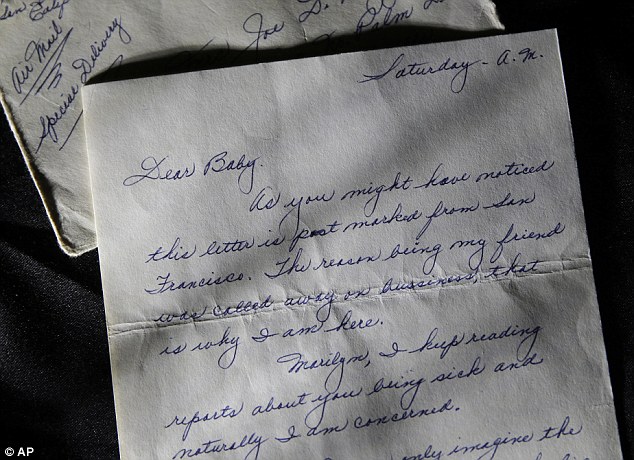 San F
Air Mail
Special Delivery
Joe D.
Palm
Saturday - A.M.
Dear Baby.
As you might have noticed
this letter is post marked from San
Francisco. The reason being my friend
was called away on bussiness, that
is why I am here.
Marilyn, I keep reading
reports about you being sick and
naturally I am concerned.
only imagine the
© AP